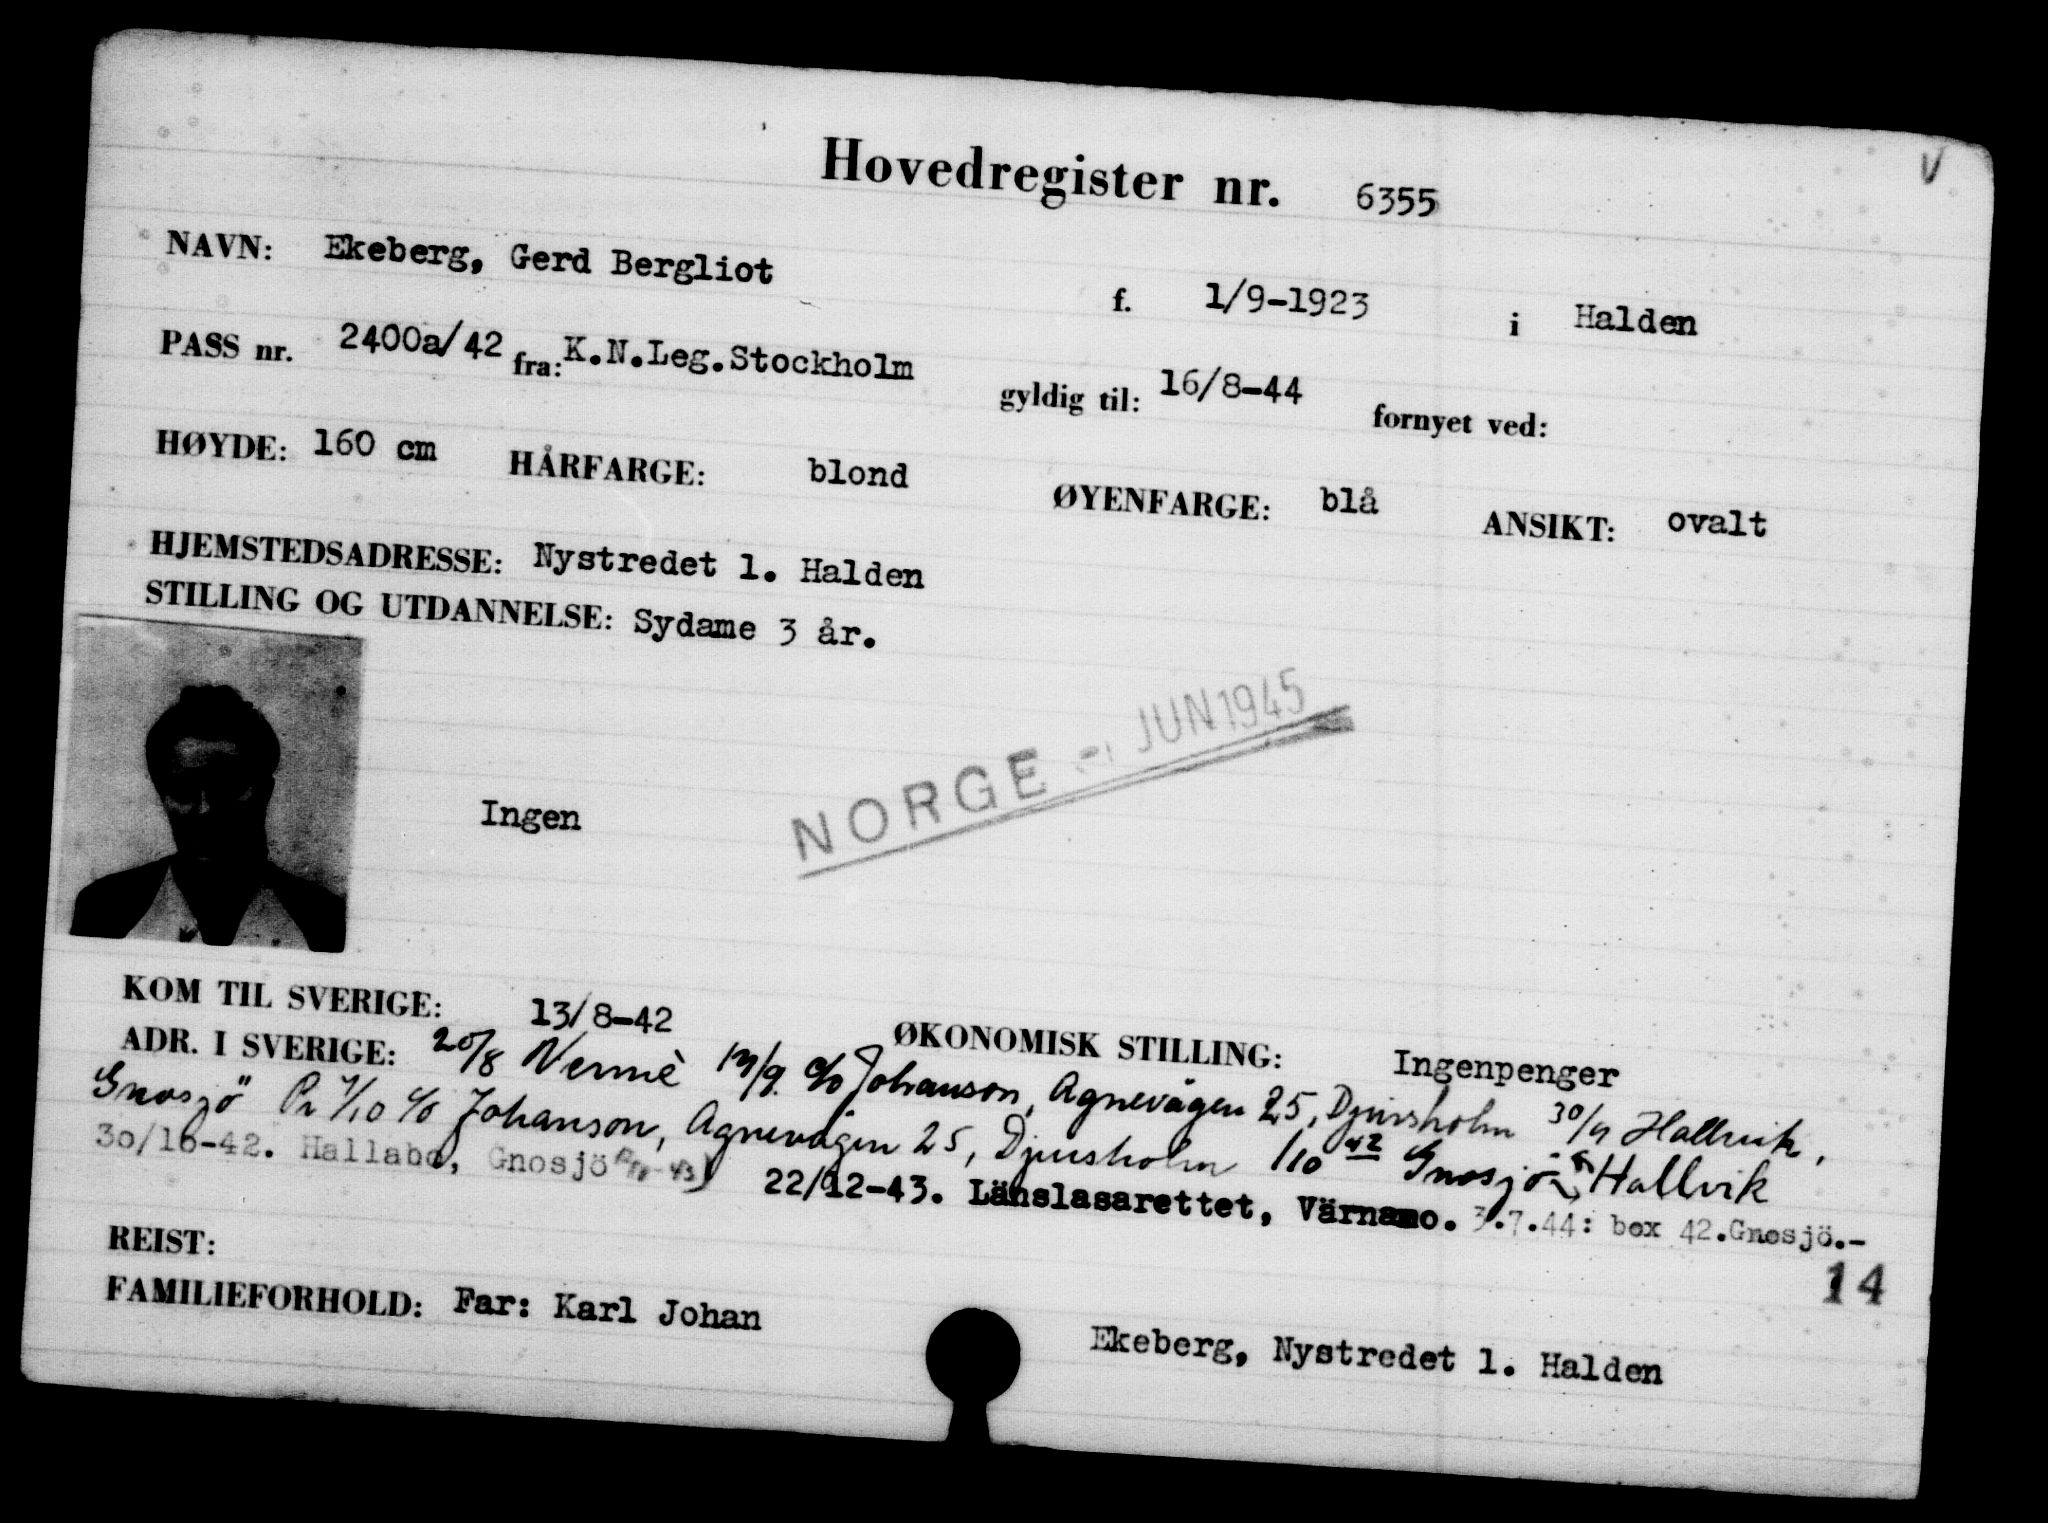 V
Hovedregister nr. 6355
NAVN: Ekeberg, Gerd Bergliot f. 1/9-1923 i Halden
PASS nr. 2400a/42 fra: K.N.Leg.Stockholm gyldig til: 16/8-44 fornyet ved:
HØYDE: 160 cm HÅRFARGE: blond ØYENFARGE: blå ANSIKT: ovalt
HJEMSTEDSADRESSE: Nystredet 1. Halden
STILLING OG UTDANNELSE: Sydame 3 år.
NORGE - JUN 1945
Ingen
KOM TIL SVERIGE: 13/8-42 ØKONOMISK STILLING: Ingenpenger
ADR. I SVERIGE: 20/8 c/o Johanson, Agnevägen 25, Djursholm 30/9 Hallvik,
Gnosjö c/o Johanson, Agnevägen 25, Djursholm 1/10 42 Gnosjö Hallvik
30/10-42. Hallabo, Gnosjö 22/12-43. Länslasarettet, Värnamo. 3.7.44: box 42.Gnosjö.-
14
REIST:
FAMILIEFORHOLD: Far: Karl Johan Ekeberg, Nystredet 1. Halden